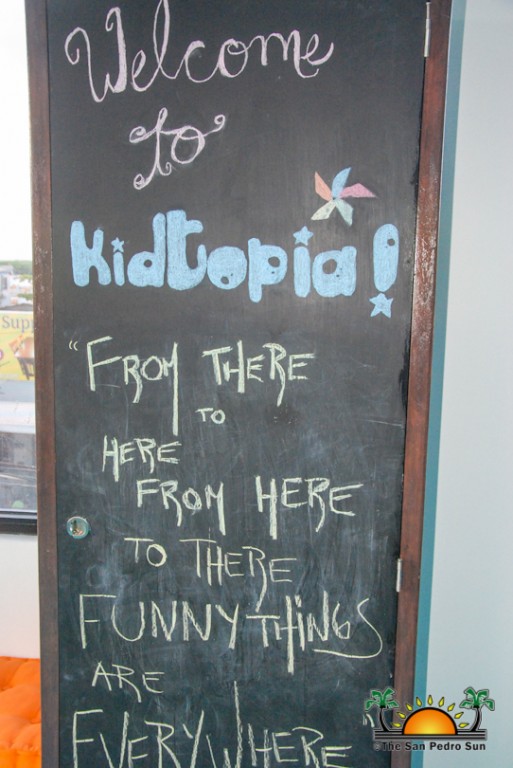 Welcome
to
Kidtopia!
"FROM THERE
TO
HERE
FROM HERE
TO THERE
FUNNY THINGS
ARE
EVERYWHERE"
Supp
©The San Pedro Sun